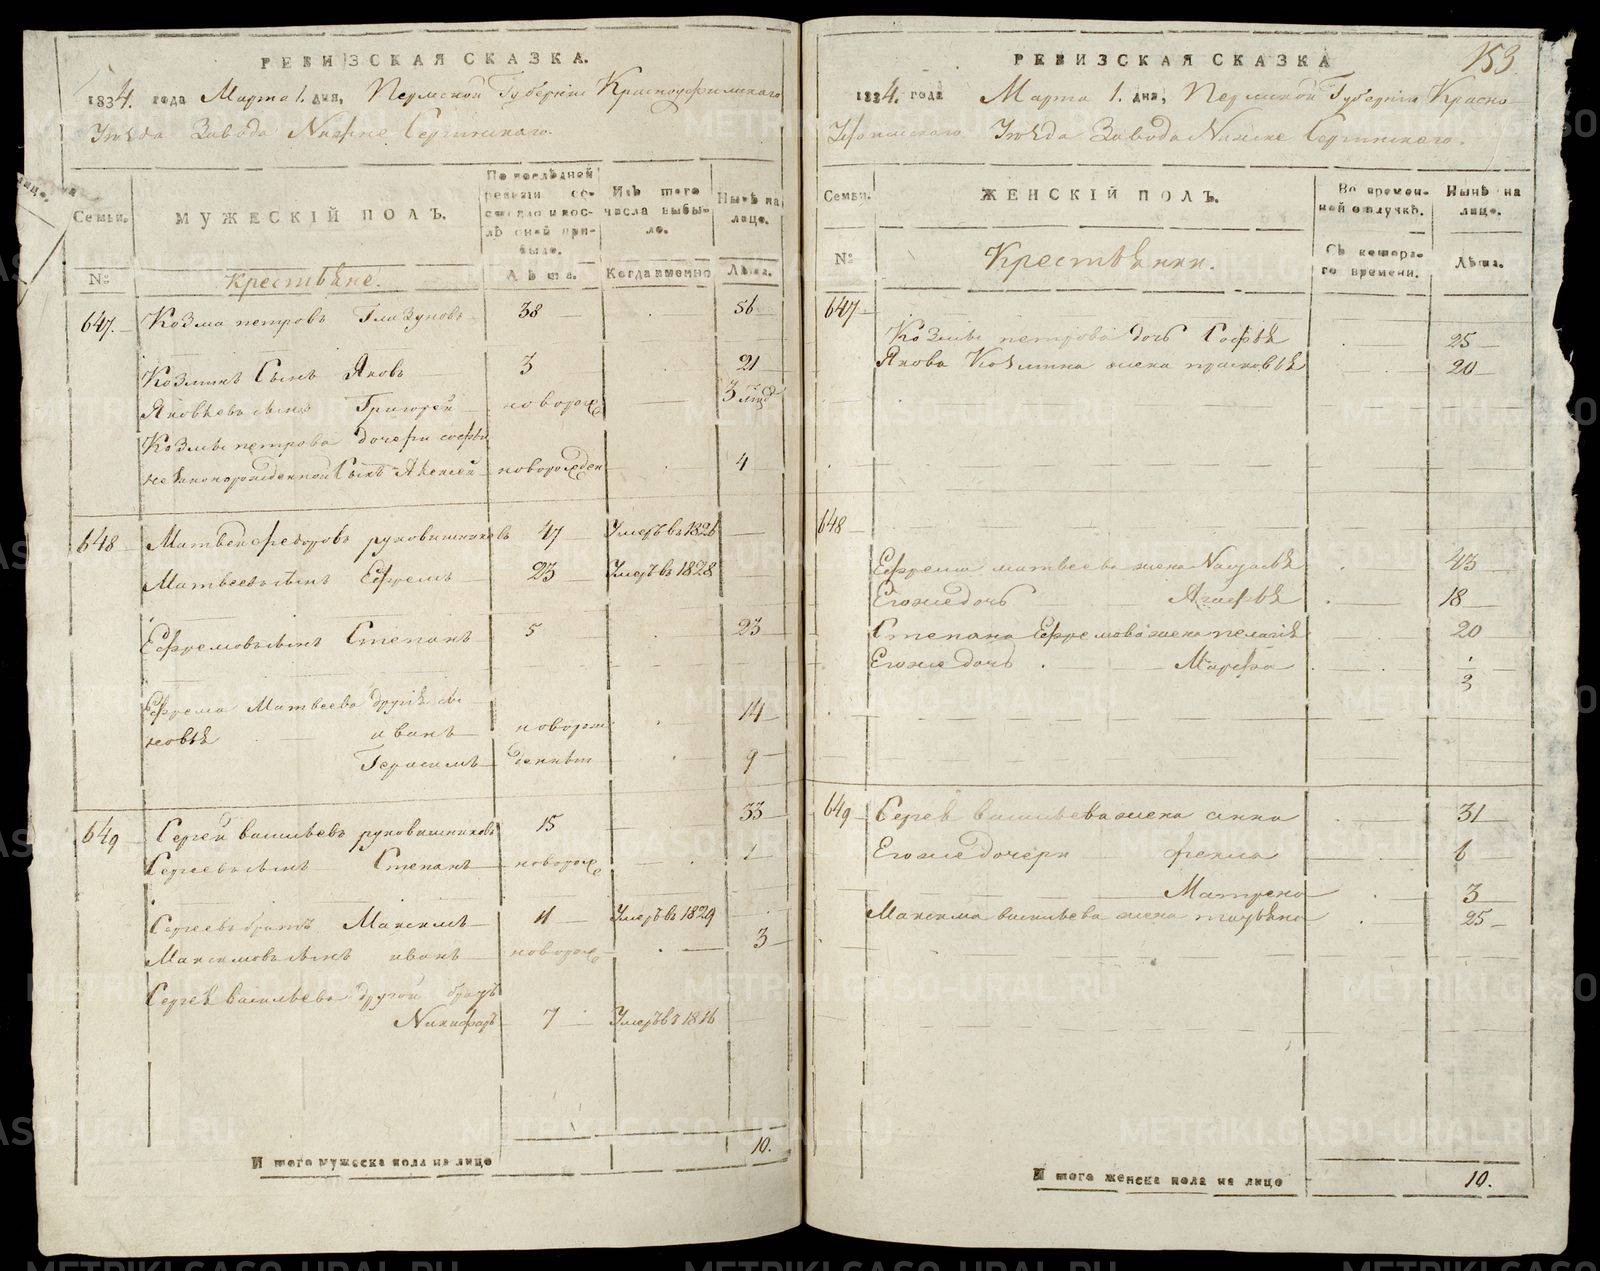 РЕВИЗСКАЯ СКАЗКА.
1834. года Марта 1. дня, Пермской Губернiи Красноуфимскаго
Уѣзда Завода Нижне Сергинскаго.
Семьи.
МУЖЕСКIЙ ПОЛЪ.
По послѣдней ревизiи состояло и послѣ оной прибыло.
Изъ того числа выбыло.
Нынѣ на лице.
№
Крестьяне.
Лѣта.
Когда именно
Лѣта.
647. Козма петровъ Глазуновъ 38 56
Козминъ Сынъ Яковъ 3 21
Яковлевъ сынъ Григорей новорож 3 лѣт
Козмы петрова дочери софьи
незаконорожденной Сынъ Алексей новорожден 4
648 Матвей федоровъ рукавишниковъ 47 Умеръ въ 1826
Матвеевъ сынъ Ефремъ 23 Умеръ въ 1828
Ефремовъ сынъ Степанъ 5 23
Ефрема Матвеева другiе сы
новья иванъ новорож 14
Герасимъ денные 9
649 Сергей васильевъ рукавишниковъ 15 33
Сергеевъ сынъ Степанъ новорож 1
Сергеевъ братъ Максимъ 11 Умеръ въ 1829
Максимовъ сынъ иванъ новорож 3
Сергея васильева другой братъ
Никифоръ 7 Умеръ въ 1816
Итого мужеска пола на лицо 10.
153
РЕВИЗСКАЯ СКАЗКА
1834. года Марта 1. дня, Пермской Губернiи Красно
уфимскаго Уѣзда Завода Нижне Сергинскаго.
Семьи.
ЖЕНСКIЙ ПОЛЪ.
Во временной отлучкѣ.
Нынѣ на лице.
№
Крестьянки.
Съ котораго времени.
Лѣта.
647
Козмы петрова дочь Софья 25
Якова Козмина жена прасковья 20
648
Ефрема матвеева жена Наталья 43
Егоже дочь Агафья 18
Степана Ефремова жена пелагея 20
Егоже дочь Марфа 3
649 Сергея васильева жена анна 31
Егоже дочери фекла 6
Матрена 3
Максима васильева жена татьяна 25
Итого женска пола на лицо 10.
METRIKI.GASO-URAL.RU